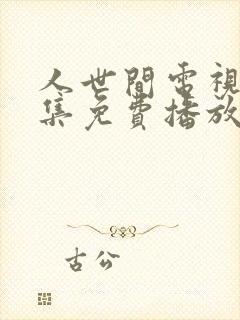 人世間電視
集免費播放
古公